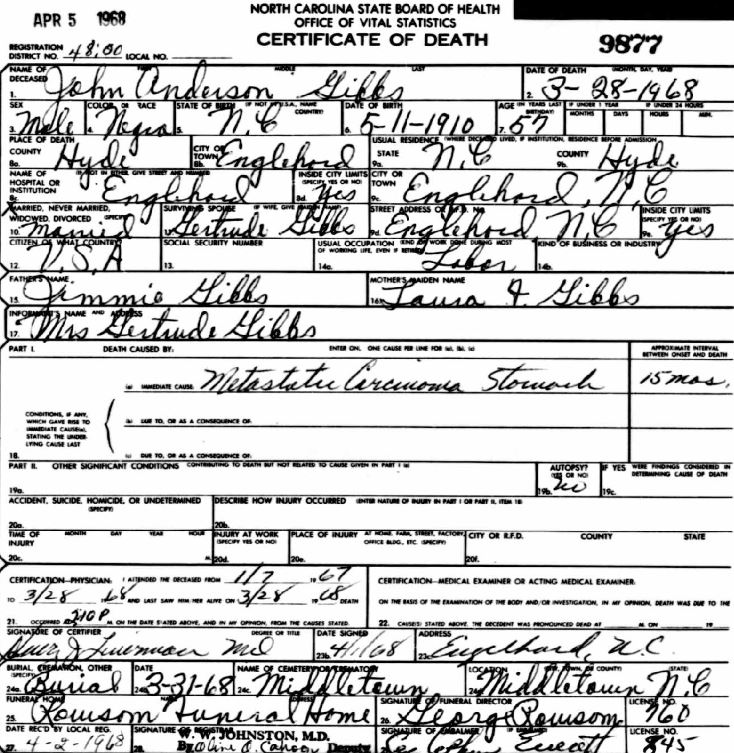 APR 5 1968
NORTH CAROLINA STATE BOARD OF HEALTH
OFFICE OF VITAL STATISTICS
CERTIFICATE OF DEATH
9877
REGISTRATION DISTRICT NO. 48.00 LOCAL NO.
NAME OF DECEASED FIRST MIDDLE LAST DATE OF DEATH (MONTH, DAY, YEAR)
1. John Anderson Gibbs 2. 3-28-1968
SEX COLOR OR RACE STATE OF BIRTH (IF NOT U.S.A., NAME COUNTRY) DATE OF BIRTH AGE (IN YEARS LAST BIRTHDAY) IF UNDER 1 YEAR MONTHS DAYS IF UNDER 24 HOURS HOURS MIN.
3. Male 4. Negro 5. N.C 6. 5-11-1910 7. 57
PLACE OF DEATH USUAL RESIDENCE (WHERE DECEASED LIVED, IF INSTITUTION, RESIDENCE BEFORE ADMISSION)
COUNTY CITY OR TOWN STATE COUNTY
8a. Hyde 8b. Englehard 9a. N.C 9b. Hyde
NAME OF HOSPITAL OR INSTITUTION (IF NOT IN EITHER, GIVE STREET AND NUMBER) INSIDE CITY LIMITS (SPECIFY YES OR NO) CITY OR TOWN
8c. Englehard 8d. yes 9c. Englehard, N,C
MARRIED, NEVER MARRIED, WIDOWED, DIVORCED (SPECIFY) SURVIVING SPOUSE (IF WIFE, GIVE MAIDEN NAME) STREET ADDRESS OR R.F.D. No. INSIDE CITY LIMITS (SPECIFY YES OR NO)
10. Married 11. Gertrude Gibbs 9d. Englehard N.C 9e. yes
CITIZEN OF WHAT COUNTRY? SOCIAL SECURITY NUMBER USUAL OCCUPATION (KIND OF WORK DONE DURING MOST OF WORKING LIFE, EVEN IF RETIRED) KIND OF BUSINESS OR INDUSTRY
12. U.S.A 13. 14a. Labor 14b.
FATHER'S NAME MOTHER'S MAIDEN NAME
15. Jimmie Gibbs 16. Laura F. Gibbs
INFORMANT'S NAME AND ADDRESS
17. Mrs Gertrude Gibbs
PART I. DEATH CAUSED BY: ENTER ONLY ONE CAUSE PER LINE FOR (a), (b), (c) APPROXIMATE INTERVAL BETWEEN ONSET AND DEATH
(a) IMMEDIATE CAUSE Metastatic Carcinoma Stomach 15 mos.
CONDITIONS, IF ANY, WHICH GAVE RISE TO IMMEDIATE CAUSE(a), STATING THE UNDERLYING CAUSE LAST
(b) DUE TO, OR AS A CONSEQUENCE OF:
18. (c) DUE TO, OR AS A CONSEQUENCE OF:
PART II. OTHER SIGNIFICANT CONDITIONS CONTRIBUTING TO DEATH BUT NOT RELATED TO CAUSE GIVEN IN PART I (a) AUTOPSY? (YES OR NO) IF YES WERE FINDINGS CONSIDERED IN DETERMINING CAUSE OF DEATH
19a. 19b. no 19c.
ACCIDENT, SUICIDE, HOMICIDE, OR UNDETERMINED (SPECIFY) DESCRIBE HOW INJURY OCCURRED (ENTER NATURE OF INJURY IN PART I OR PART II, ITEM 18)
20a. 20b.
TIME OF INJURY MONTH DAY YEAR HOUR INJURY AT WORK (SPECIFY YES OR NO) PLACE OF INJURY AT HOME, FARM, STREET, FACTORY, OFFICE BLDG., ETC. (SPECIFY) CITY OR R.F.D. COUNTY STATE
20c. M. 20d. 20e. 20f.
CERTIFICATION—PHYSICIAN: I ATTENDED THE DECEASED FROM 1/7 1967 CERTIFICATION—MEDICAL EXAMINER OR ACTING MEDICAL EXAMINER:
TO 3/28 1968 AND LAST SAW HIM/HER ALIVE ON 3/28 1968 DEATH ON THE BASIS OF THE EXAMINATION OF THE BODY AND/OR INVESTIGATION, IN MY OPINION, DEATH WAS DUE TO THE
21. OCCURRED AT 210P M. ON THE DATE STATED ABOVE, AND IN MY OPINION, FROM THE CAUSES STATED. 22. CAUSE(S) STATED ABOVE. THE DECEDENT WAS PRONOUNCED DEAD AT M. ON 19
SIGNATURE OF CERTIFIER DEGREE OR TITLE DATE SIGNED ADDRESS
MD 23b. 4/1/68 23c. Engelhard, N.C.
BURIAL, CREMATION, OTHER (SPECIFY) DATE NAME OF CEMETERY OR CREMATORY LOCATION (CITY, TOWN, OR COUNTY) (STATE)
24a. Burial 24b. 3-31-68 24c. Middletown 24d. Middletown N.C
FUNERAL HOME SIGNATURE OF FUNERAL DIRECTOR LICENSE NO.
25. Rowsom Funeral Home 26. George Rowsom 760
DATE REC'D BY LOCAL REG. SIGNATURE OF REGISTRAR W. W. JOHNSTON, M.D. LICENSE NO.
27. 4-2-1968 28. By Deputy 845